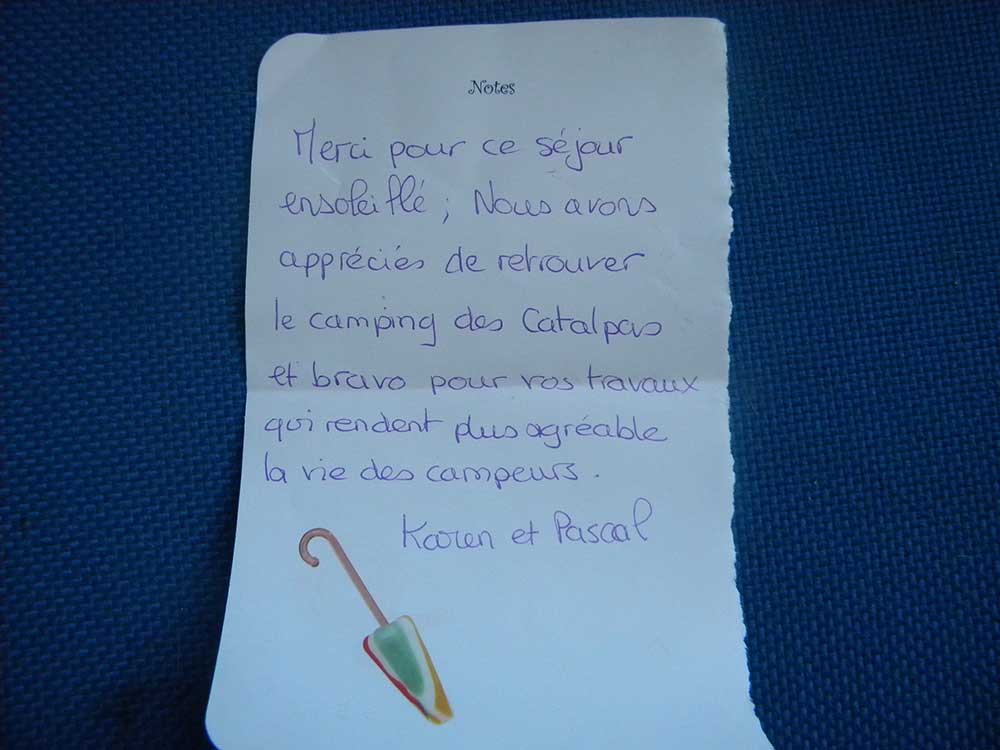 Notes
Merci pour ce séjour
ensoleillé ; Nous avons
appréciés de retrouver
le camping des Catalpas
et bravo pour vos travaux
qui rendent plus agréable
la vie des campeurs.
Karen et Pascal